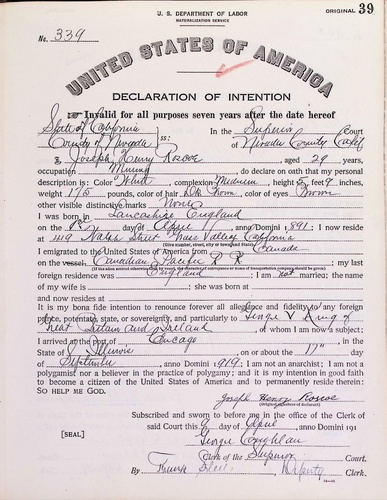 U. S. DEPARTMENT OF LABOR
NATURALIZATION SERVICE
ORIGINAL 39
No. 339
UNITED STATES OF AMERICA
DECLARATION OF INTENTION
Invalid for all purposes seven years after the date hereof
State of California
County of Nevada ss:
In the Superior Court
of Nevada County Calif
I, Joseph Henry Roscoe, aged 29 years,
occupation Mining, do declare on oath that my personal
description is: Color White, complexion Medium, height 5 feet 9 inches,
weight 175 pounds, color of hair Dk Brown, color of eyes Brown
other visible distinctive marks None
I was born in Lancashire England
on the day of April, anno Domini 1891; I now reside
at Street Grass Valley California
(Give number, street, city or town, and State.)
I emigrated to the United States of America from Canada
on the vessel Canadian Pacific R R; my last
(If the alien arrived otherwise than by vessel, the character of conveyance or name of transportation company should be given.)
foreign residence was England; I am not married; the name
of my wife is; she was born at
and now resides at
It is my bona fide intention to renounce forever all allegiance and fidelity to any foreign
prince, potentate, state, or sovereignty, and particularly to George V King of
Great Britain and Ireland, of whom I am now a subject;
I arrived at the port of Chicago, in the
State of Illinois, on or about the 17" day
of September, anno Domini 1919; I am not an anarchist; I am not a
polygamist nor a believer in the practice of polygamy; and it is my intention in good faith
to become a citizen of the United States of America and to permanently reside therein:
SO HELP ME GOD.
Joseph Henry Roscoe
(Original signature of declarant.)
Subscribed and sworn to before me in the office of the Clerk of
[SEAL] said Court this day of April, anno Domini 191
George Coughlan
Clerk of the Superior Court.
By Frank, Deputy Clerk.